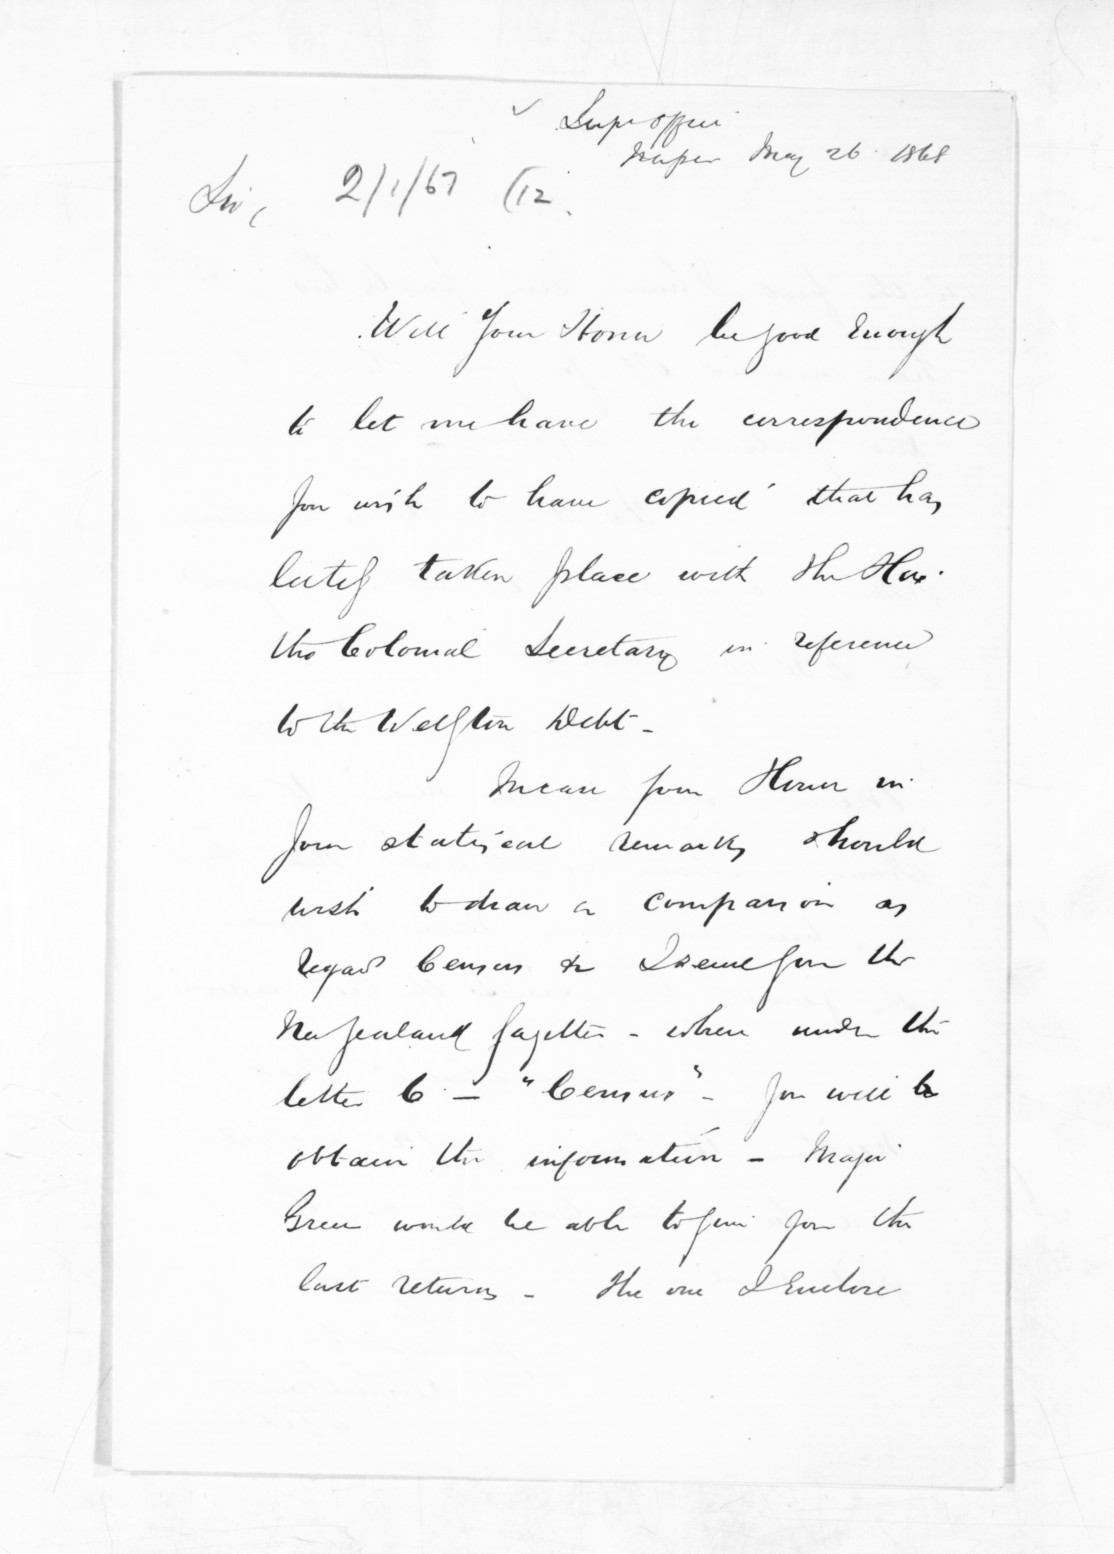 Supr Office
Napier May 26. 1868
Sir, 2/1/67 (12.
Will Your Honor be good Enough
to let me have the correspondence
you wish to have copied that has
lately taken place with the Hon.
the Colonial Secretary in reference
to the Welgton Debt -
In case your Honor in
your statisical remarks should
wish to draw a comparison as
regard Census &c I send you the
New Zealand Gazette - where under the
letter C - "Census" - you will be
obtain the information - Major
Green would be able to give you the
last returns - The one I Enclose